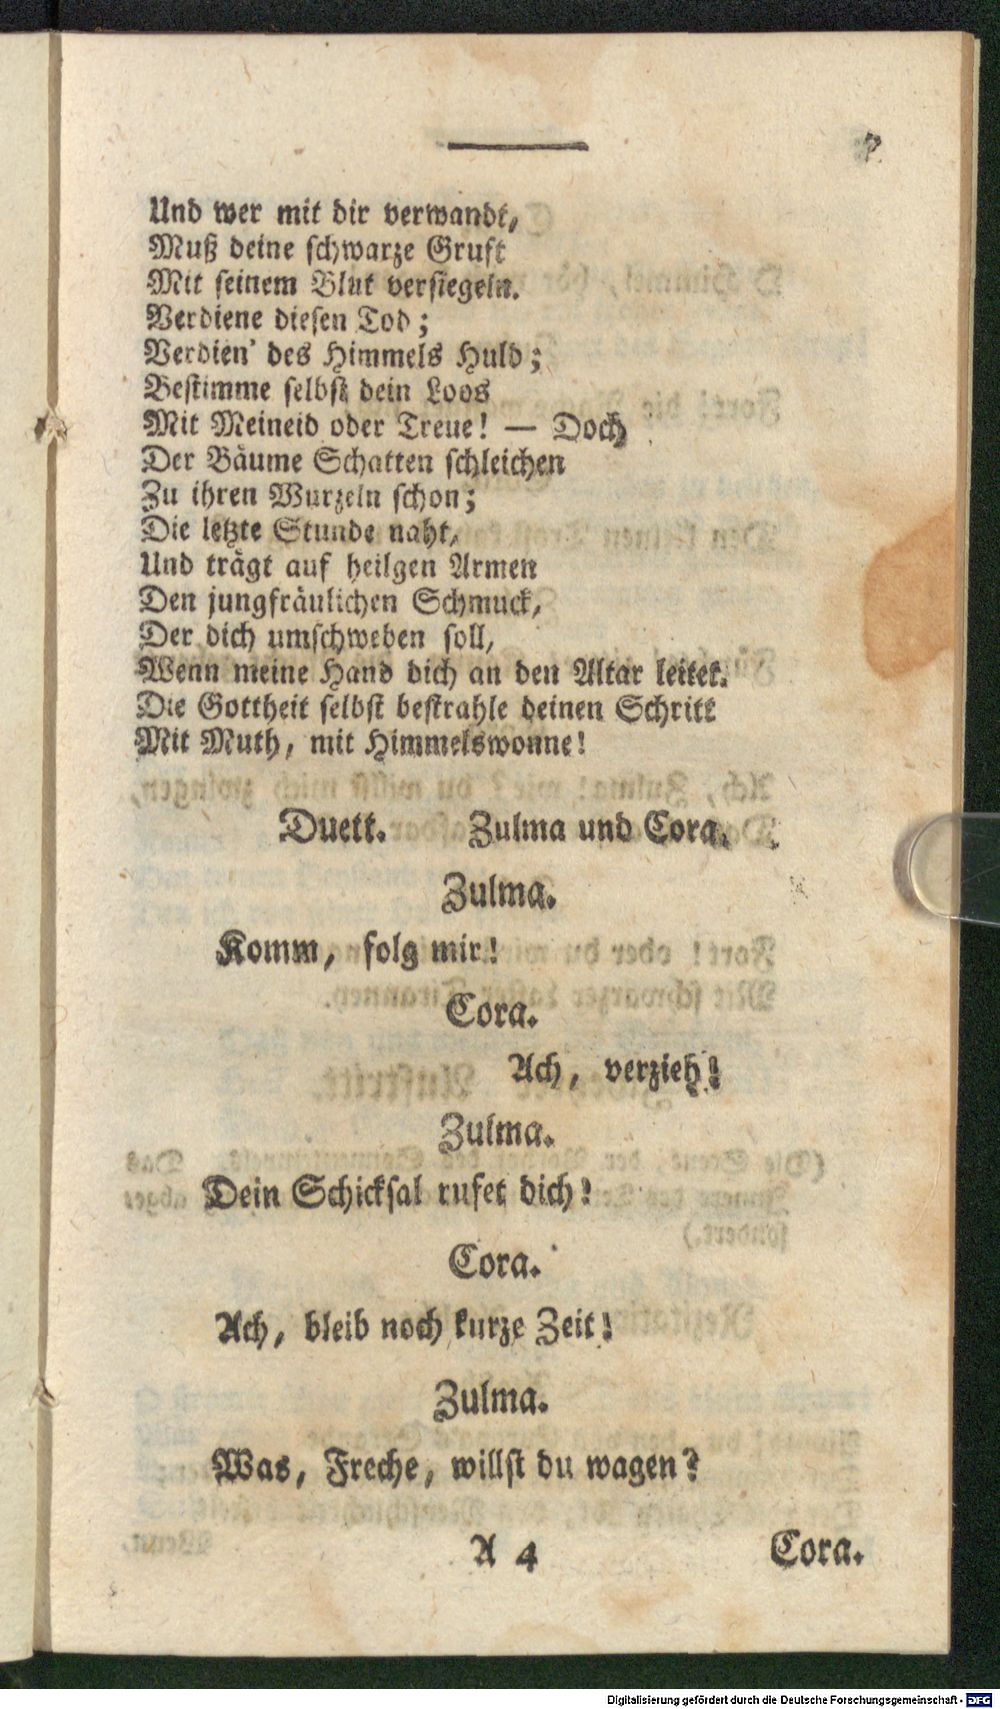 7
Und wer mit dir verwandt,
Muß deine schwarze Gruft
Mit seinem Blut versiegeln.
Verdiene diesen Tod;
Verdien' des Himmels Huld;
Bestimme selbst dein Loos
Mit Meineid oder Treue! — Doch
Der Bäume Schatten schleichen
Zu ihren Wurzeln schon;
Die letzte Stunde naht,
Und trägt auf heilgen Armen
Den jungfräulichen Schmuck,
Der dich umschweben soll,
Wenn meine Hand dich an den Altar leitet.
Die Gottheit selbst bestrahle deinen Schritt
Mit Muth, mit Himmelswonne!
Duett. Zulma und Cora.
Zulma.
Komm, folg mir!
Cora.
Ach, verzieh!
Zulma.
Dein Schicksal rufet dich!
Cora.
Ach, bleib noch kurze Zeit!
Zulma.
Was, Freche, willst du wagen?
A 4 Cora.
Digitalisierung gefördert durch die Deutsche Forschungsgemeinschaft - DFG